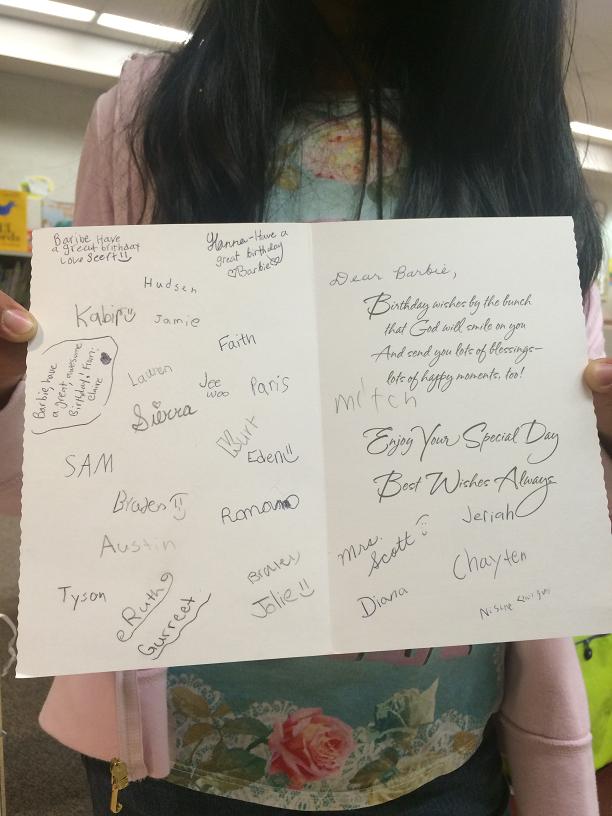 Baribe Have
a great brithday
Love Seerft
Hanna-Have a
great birthday
Barbie
Hudsen
Kabir
Jamie
Faith
Barbie, have
a great awesome
Birthday! From:
Claire
Lauren
Jee
woo
Paris
Sierra
Kurt
Eden
SAM
Brayden
Roman
Austin
Tyson
Ruth
Gurreet
Jolie
Dear Barbie,
Birthday wishes by the bunch
that God will smile on you
And send you lots of blessings—
lots of happy moments, too!
mitch
Enjoy Your Special Day
Best Wishes Always
Jeriah
Mrs.
Scott
Chayten
Diana